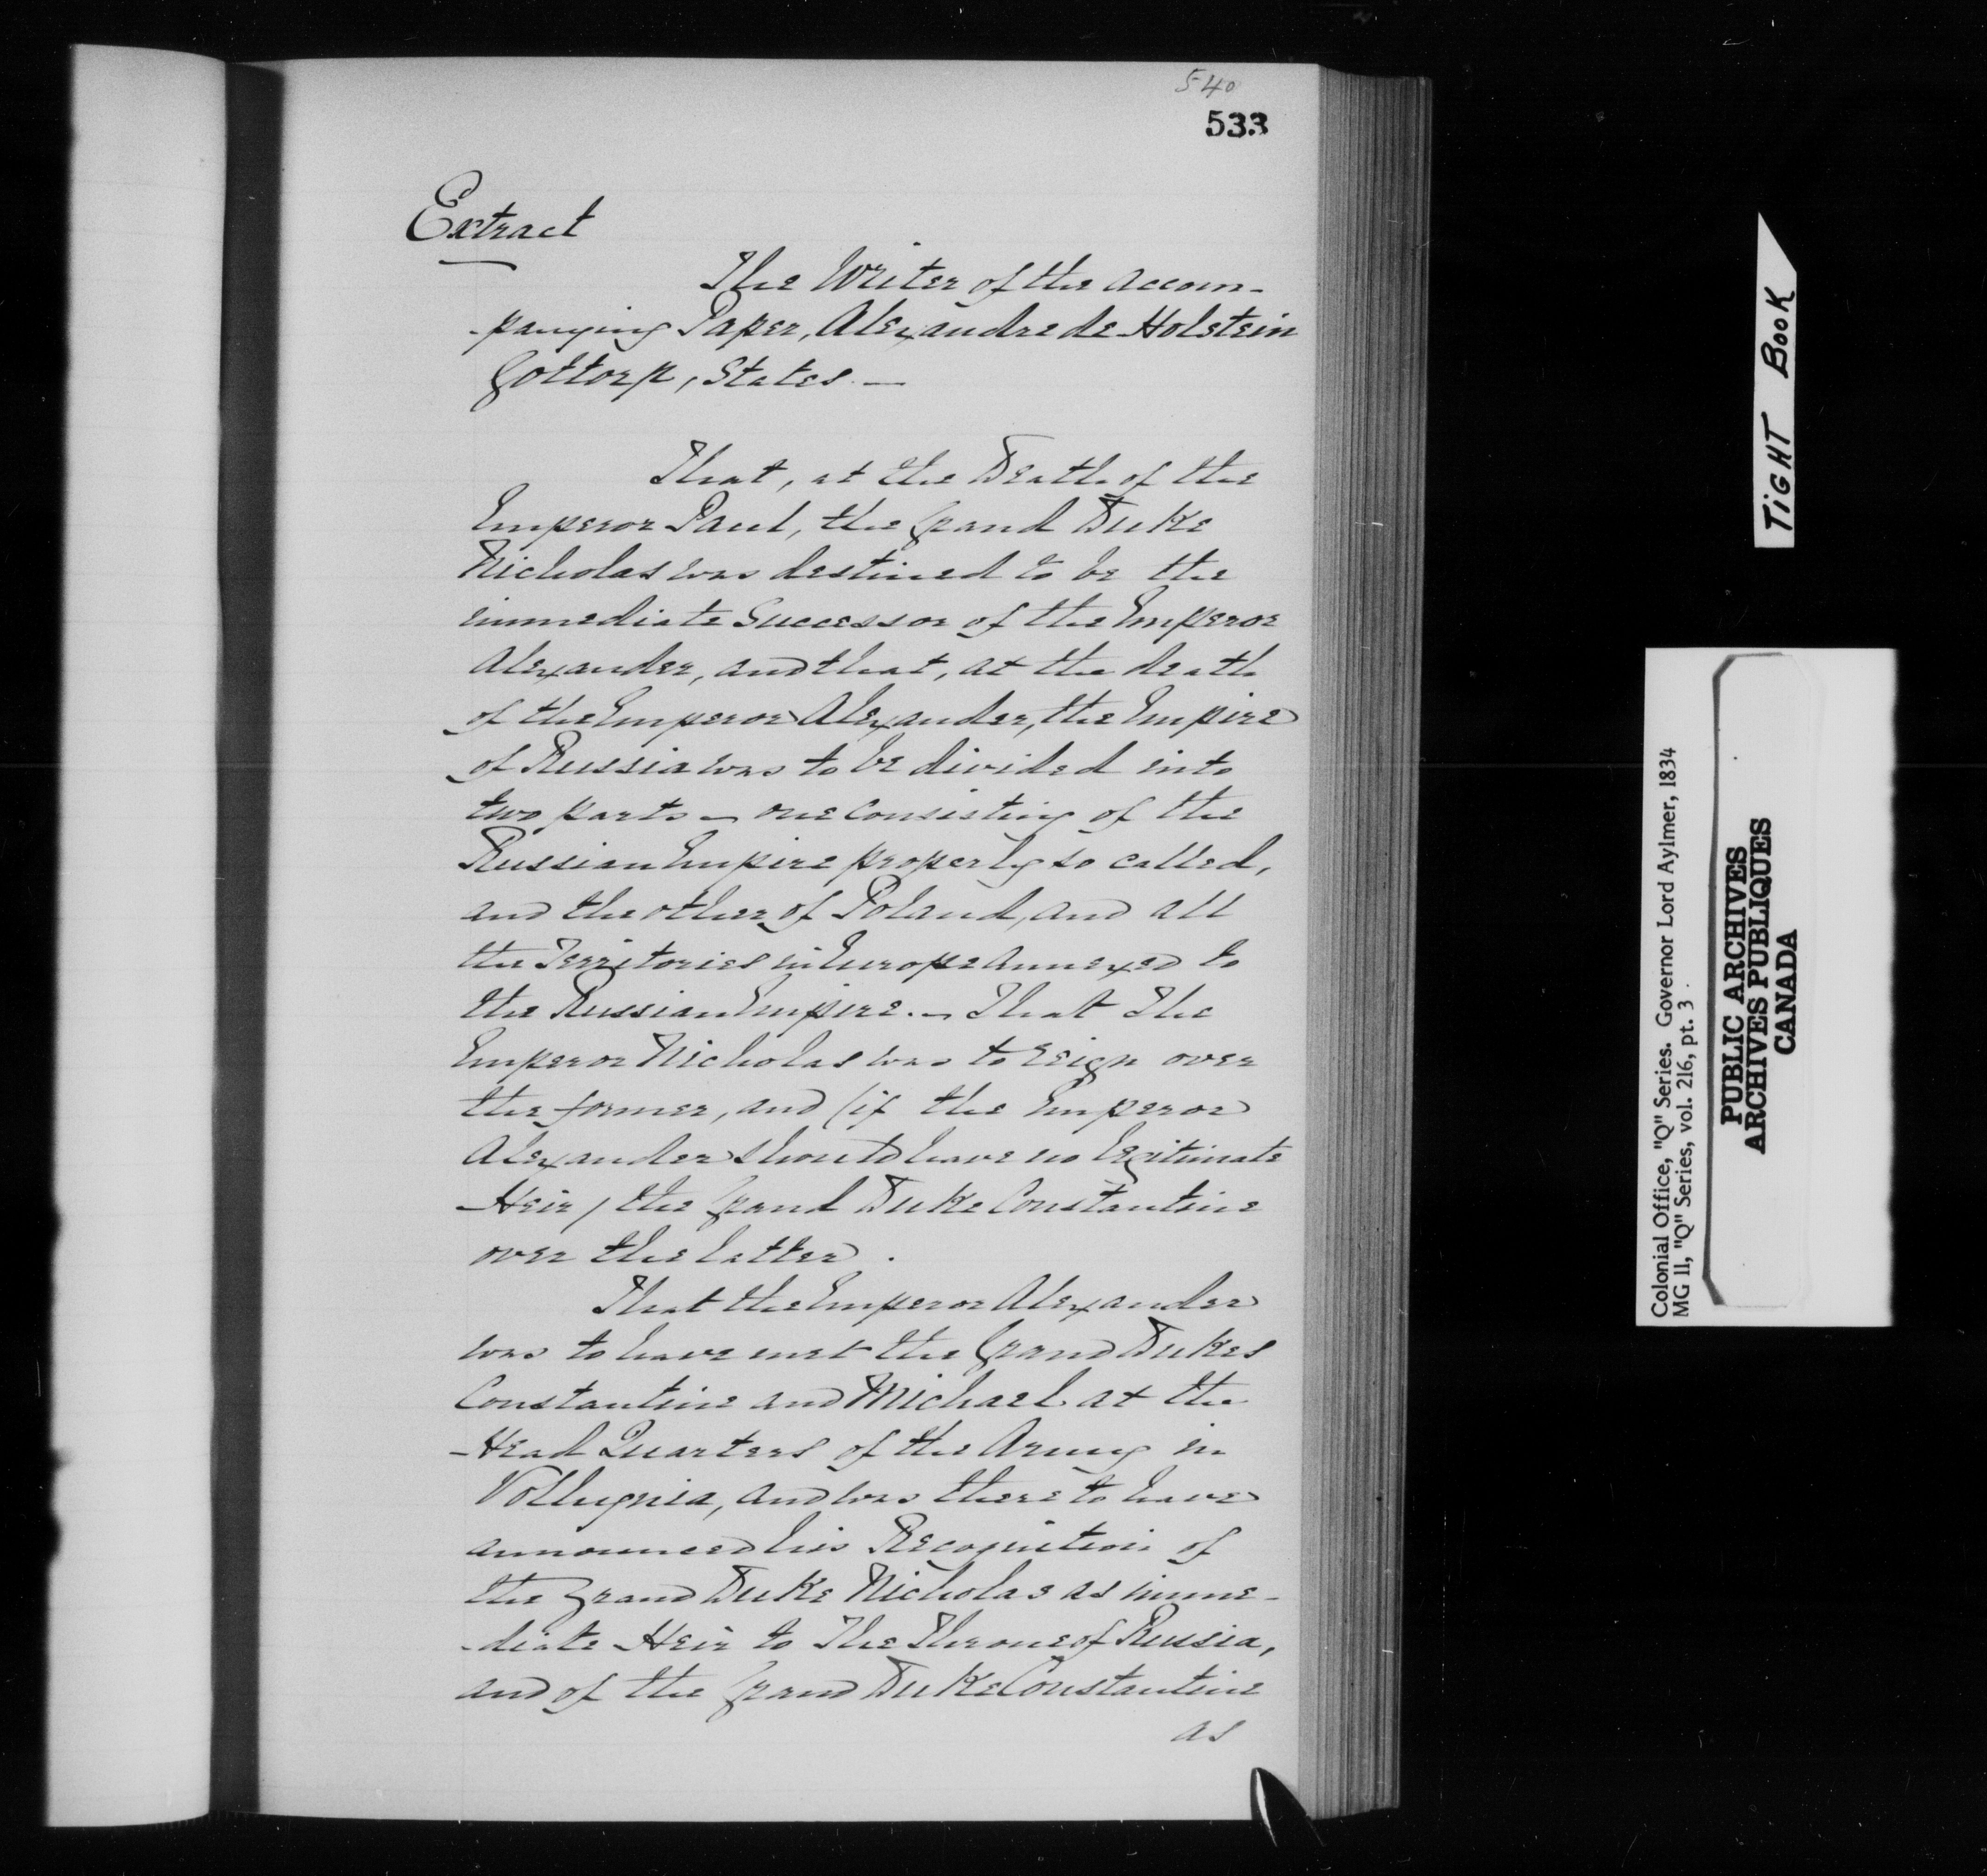 540
533
Extract
The Writer of the accom-
-panying Paper, Alexandre de Holstein
Gottorp, States. —
That, at the Death of the
Emperor Paul, the Grand Duke
Nicholas was destined to be the
immediate Successor of the Emperor
Alexander, and that, at the death
of the Emperor Alexander, the Empire
of Russia was to be divided into
two parts — one consisting of the
Russian Empire properly so called,
and the other of Poland, and all
the Territories in Europe annexed to
the Russian Empire. — That The
Emperor Nicholas was to reign over
the former, and (if the Emperor
Alexander should leave no legitimate
Heir) the Grand Duke Constantine
over the latter.
That the Emperor Alexander
was to have met the Grand Dukes
Constantine and Michael at the
Head Quarters of the Army in
Volhynia, and was there to have
announced his Recognition of
the Grand Duke Nicholas as imme-
-diate Heir to The Throne of Russia,
and of the Grand Duke Constantine
as
TIGHT BOOK
Colonial Office, "Q" Series. Governor Lord Aylmer, 1834
MG 11, "Q" Series, vol. 216, pt. 3
PUBLIC ARCHIVES
ARCHIVES PUBLIQUES
CANADA